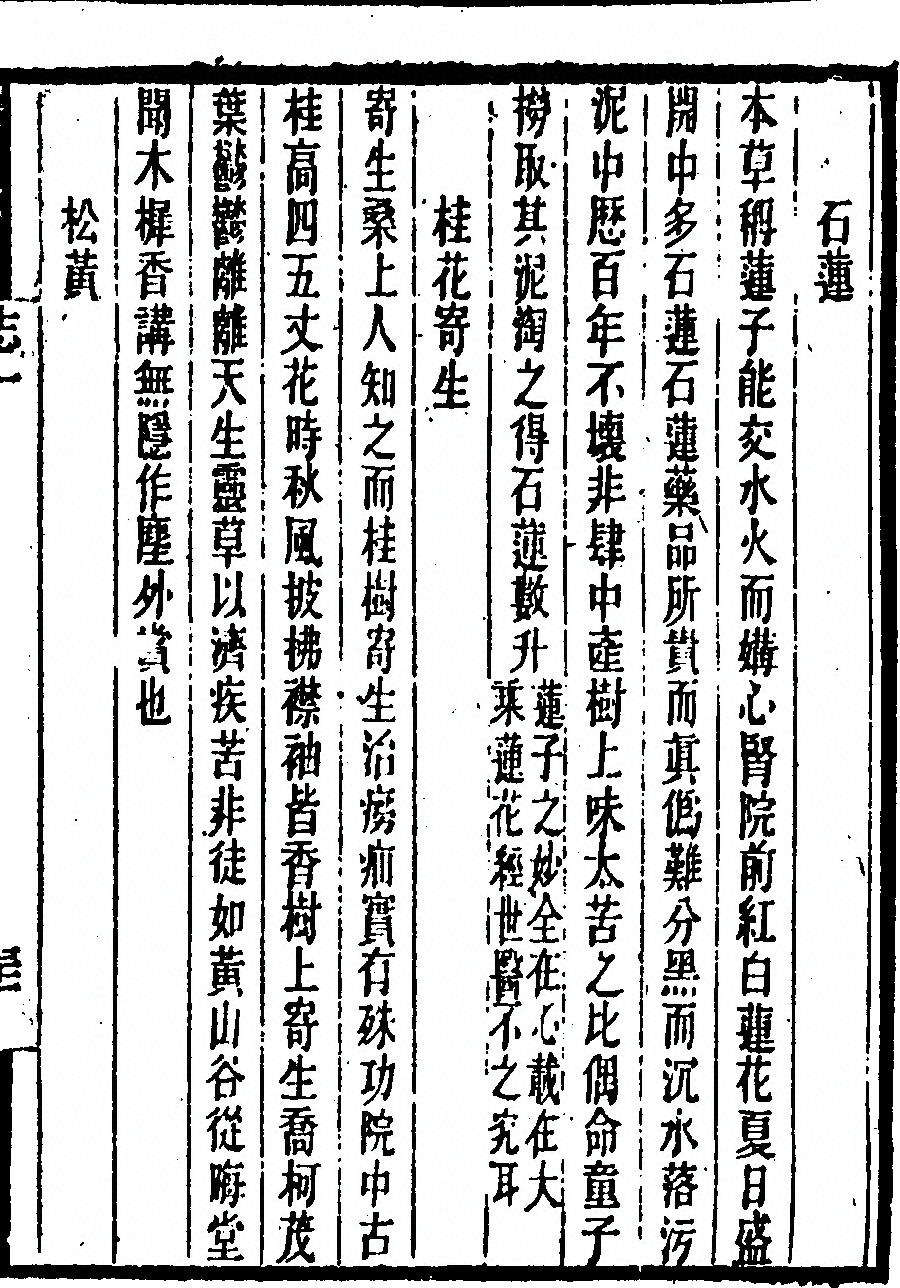 石蓮
本草稱蓮子能交水火而媾心腎院前紅白蓮花夏日盛
開中多石蓮石蓮藥品所貴而眞僞難分黑而沉水落污
泥中歷百年不壞非肆中產樹上味太苦之比偶命童子
撈取其泥淘之得石蓮數升
蓮子之妙全在心載在大
乘蓮花經世醫不之究耳
桂花寄生
寄生桑上人知之而桂樹寄生治癆痾實有殊功院中古
桂高四五丈花時秋風披拂襟袖皆香樹上寄生喬柯茂
葉鬱鬱離離天生靈草以濟疾苦非徒如黃山谷從晦堂
聞木樨香講無隱作塵外賞也
松黃
志一